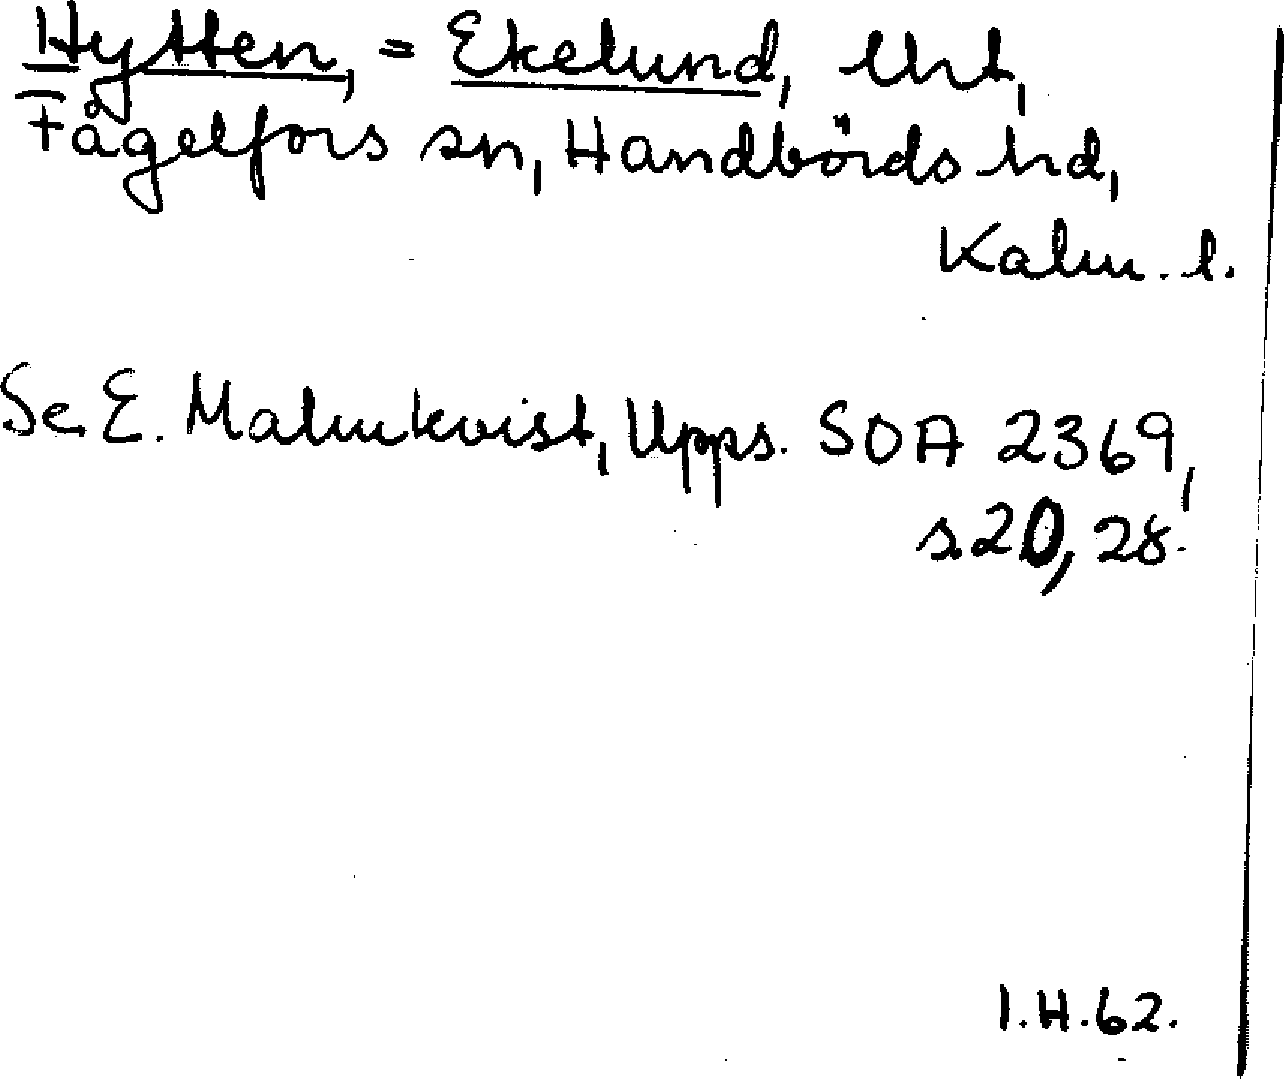 Hytten, = Ekelund, lht,
Fågelfors sn, Handbörds hd,
Kalm. l.
Se E. Malmkvist, Upps. SOA 2369,
s 20, 28.
I.H.62.